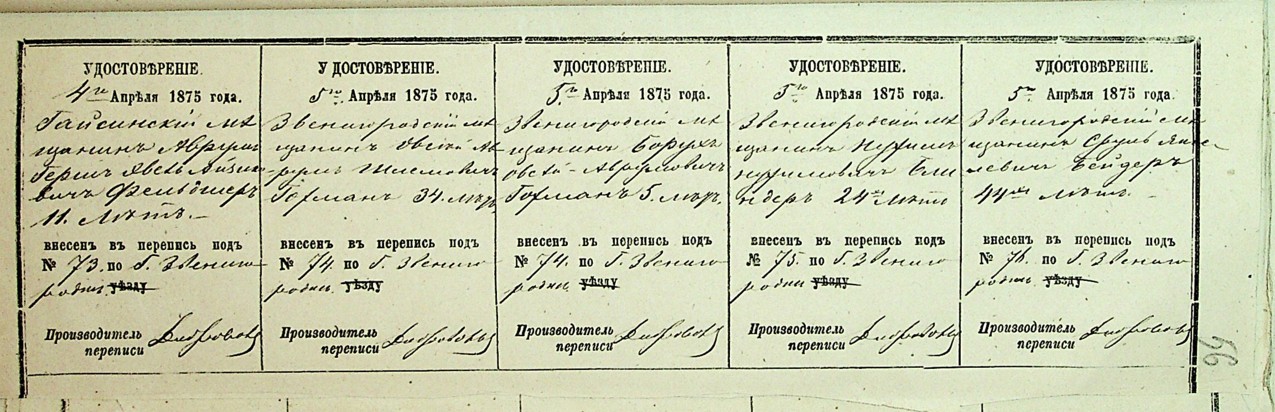 УДОСТОВѢРЕНІЕ.
4го Апрѣля 1875 года.
Гайсинскій мѣ
щанинъ Аврумъ
Гершъ
вичъ Фельдшеръ
11. Лѣтъ.
внесенъ въ перепись подъ
№ 73. по Г. Звениго
родки уѣзду
Производитель
переписи
У ДОСТОВѢРЕНІЕ.
5го Апрѣля 1875 года.
Звенигородскій мѣ
щанинъ Овсей Ав
румъ
Гофманъ 34. лѣтъ
внесенъ въ перепись подъ
№ 74. по Г. Звениго
родки уѣзду
Производитель
переписи
УДОСТОВѢРЕНІЕ.
5го Апрѣля 1875 года.
Звенигородскій мѣ
щанинъ Борухъ
Овсей-Аврумовичъ
Гофманъ 5. лѣтъ.
внесенъ въ перепись подъ
№ 74. по Г. Звениго
родки уѣзду
Производитель
переписи
УДОСТОВѢРЕНІЕ.
5го Апрѣля 1875 года.
Звенигородскій мѣ
щанинъ Нухимъ
24 лѣтъ
внесенъ въ перепись подъ
№ 75. по Г. Звениго
родки уѣзду
Производитель
переписи
УДОСТОВѢРЕНІЕ.
5го Апрѣля 1875 года.
Звенигородскій мѣ
щанинъ Сруль Янке
левичъ Бендеръ
44 лѣтъ.
внесенъ въ перепись подъ
№ 76. по Г. Звениго
родки уѣзду
Производитель
переписи
56